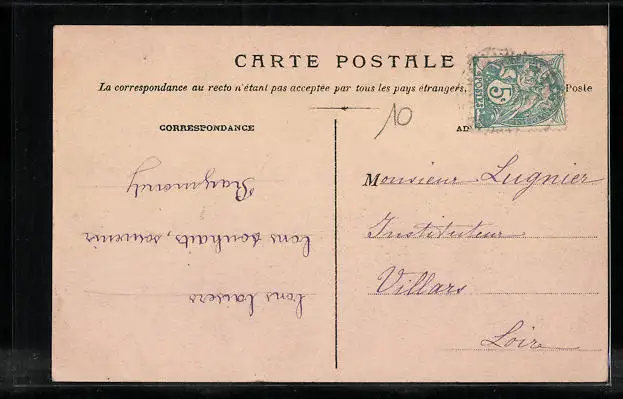 CARTE POSTALE
La correspondance au recto n'étant pas acceptée par tous les pays étrangers, Poste
10
CORRESPONDANCE
AD
Monsieur Lugnier
Instituteur
Villars
Loire
bons baisers
bons souhaits, souvenir
Raymond
5c